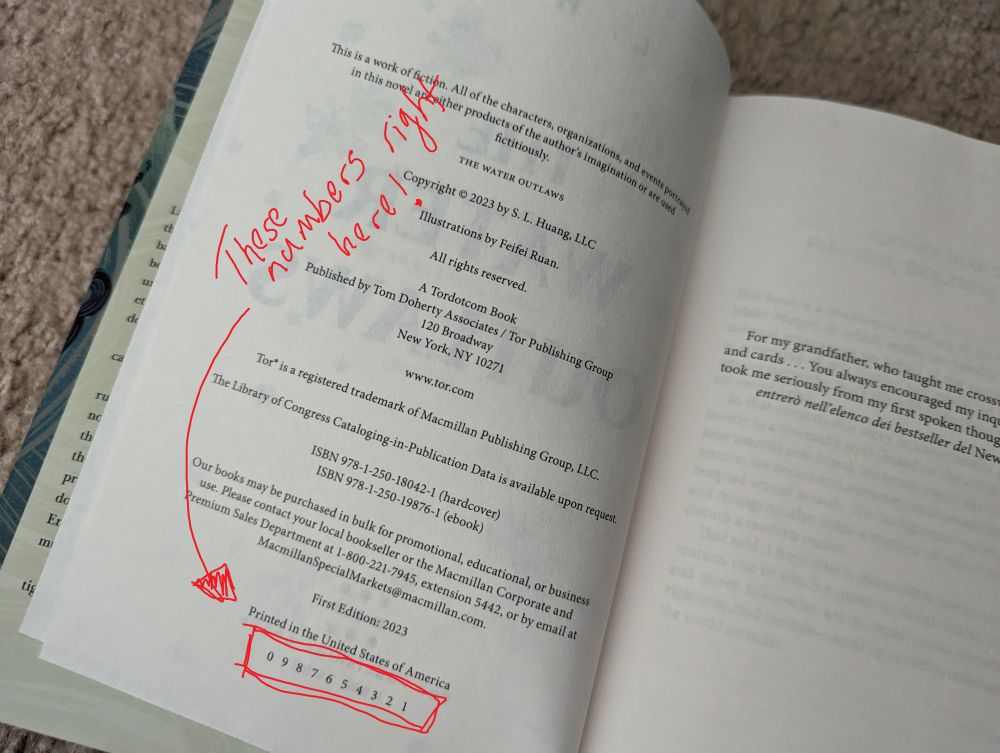 This is a work of fiction. All of the characters, organizations, and events portrayed
in this novel are either products of the author's imagination or are used
fictitiously.
THE WATER OUTLAWS
Copyright © 2023 by S. L. Huang, LLC
Illustrations by Feifei Ruan.
All rights reserved.
A Tordotcom Book
Published by Tom Doherty Associates / Tor Publishing Group
120 Broadway
New York, NY 10271
www.tor.com
Tor® is a registered trademark of Macmillan Publishing Group, LLC.
The Library of Congress Cataloging-in-Publication Data is available upon request.
ISBN 978-1-250-18042-1 (hardcover)
ISBN 978-1-250-19876-1 (ebook)
Our books may be purchased in bulk for promotional, educational, or business
use. Please contact your local bookseller or the Macmillan Corporate and
Premium Sales Department at 1-800-221-7945, extension 5442, or by email at
MacmillanSpecialMarkets@macmillan.com.
First Edition: 2023
Printed in the United States of America
0 9 8 7 6 5 4 3 2 1
These
numbers right
here!
For my grandfather, who taught me
and cards . . . You always encouraged my
took me seriously from my first spoken
entrerò nell'elenco dei bestseller del New